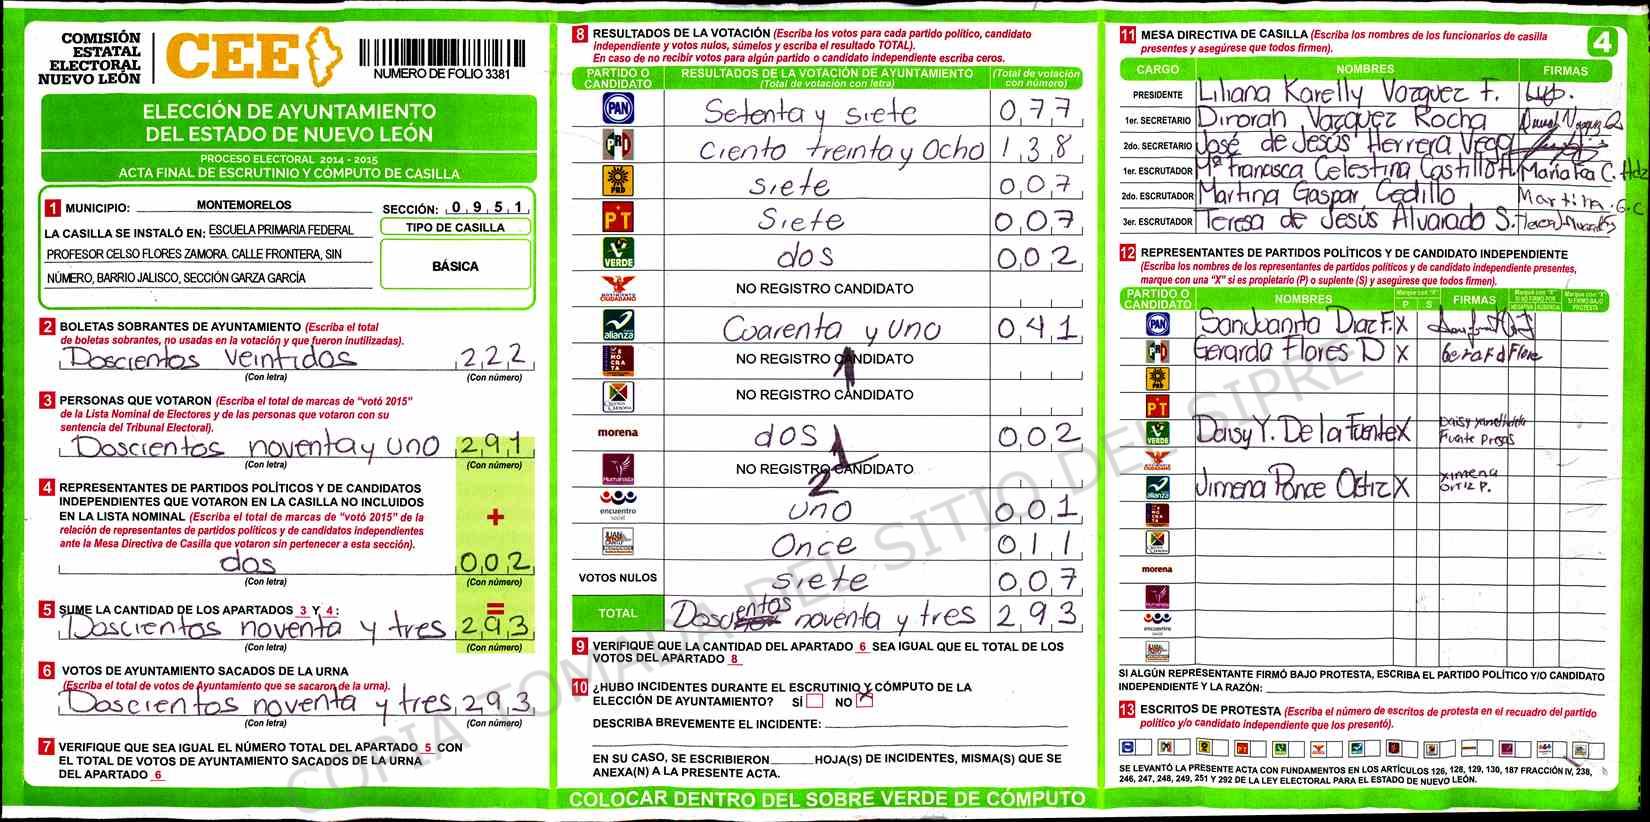 COMISIÓN
ESTATAL
ELECTORAL
NUEVO LEÓN
CEE
NUMERO DE FOLIO 3381
ELECCIÓN DE AYUNTAMIENTO
DEL ESTADO DE NUEVO LEÓN
PROCESO ELECTORAL 2014 - 2015
ACTA FINAL DE ESCRUTINIO Y CÓMPUTO DE CASILLA
1 MUNICIPIO: MONTEMORELOS SECCIÓN: 0951
LA CASILLA SE INSTALÓ EN: ESCUELA PRIMARIA FEDERAL
PROFESOR CELSO FLORES ZAMORA. CALLE FRONTERA, SIN
NÚMERO, BARRIO JALISCO, SECCIÓN GARZA GARCÍA
TIPO DE CASILLA
BÁSICA
2 BOLETAS SOBRANTES DE AYUNTAMIENTO (Escriba el total
de boletas sobrantes, no usadas en la votación y que fueron inutilizadas).
Doscientos veintidos 222
(Con letra) (Con número)
3 PERSONAS QUE VOTARON (Escriba el total de marcas de “votó 2015”
de la Lista Nominal de Electores y de las personas que votaron con su
sentencia del Tribunal Electoral).
Doscientos noventa y uno 291
(Con letra) (Con número)
4 REPRESENTANTES DE PARTIDOS POLÍTICOS Y DE CANDIDATOS
INDEPENDIENTES QUE VOTARON EN LA CASILLA NO INCLUIDOS
EN LA LISTA NOMINAL (Escriba el total de marcas de “votó 2015” de la
relación de representantes de partidos políticos y de candidatos independientes
ante la Mesa Directiva de Casilla que votaron sin pertenecer a esta sección).
+
dos 002
(Con letra) (Con número)
5 SUME LA CANTIDAD DE LOS APARTADOS 3 Y 4: =
Doscientos noventa y tres 293
(Con letra) (Con número)
6 VOTOS DE AYUNTAMIENTO SACADOS DE LA URNA
(Escriba el total de votos de Ayuntamiento que se sacaron de la urna).
Doscientos noventa y tres 293
(Con letra) (Con número)
7 VERIFIQUE QUE SEA IGUAL EL NÚMERO TOTAL DEL APARTADO 5 CON
EL TOTAL DE VOTOS DE AYUNTAMIENTO SACADOS DE LA URNA
DEL APARTADO 6
8 RESULTADOS DE LA VOTACIÓN (Escriba los votos para cada partido político, candidato
independiente y votos nulos, súmelos y escriba el resultado TOTAL).
En caso de no recibir votos para algún partido o candidato independiente escriba ceros.
PARTIDO O CANDIDATO RESULTADOS DE LA VOTACIÓN DE AYUNTAMIENTO (Total de votación con letra) (Total de votación con número)
PAN Setenta y siete 077
PRI Ciento treinta y Ocho 138
PRD siete 007
PT Siete 007
VERDE dos 002
MOVIMIENTO CIUDADANO NO REGISTRO CANDIDATO
alianza Cuarenta y uno 041
NO REGISTRO CANDIDATO
1
NO REGISTRO CANDIDATO
morena dos 002
1
Humanista NO REGISTRO CANDIDATO
2
encuentro social uno 001
Once 011
VOTOS NULOS siete 007
TOTAL Doscientos noventa y tres 293
9 VERIFIQUE QUE LA CANTIDAD DEL APARTADO 6 SEA IGUAL QUE EL TOTAL DE LOS
VOTOS DEL APARTADO 8
10 ¿HUBO INCIDENTES DURANTE EL ESCRUTINIO Y CÓMPUTO DE LA
ELECCIÓN DE AYUNTAMIENTO? SÍ NO X
DESCRIBA BREVEMENTE EL INCIDENTE:
EN SU CASO, SE ESCRIBIERON HOJA(S) DE INCIDENTES, MISMA(S) QUE SE
ANEXA(N) A LA PRESENTE ACTA.
COLOCAR DENTRO DEL SOBRE VERDE DE CÓMPUTO
11 MESA DIRECTIVA DE CASILLA (Escriba los nombres de los funcionarios de casilla
presentes y asegúrese que todos firmen).
4
CARGO NOMBRES FIRMAS
PRESIDENTE Liliana Karelly Vazquez F.
1er. SECRETARIO Dinorah Vazquez Rocha
2do. SECRETARIO José de Jesús Herrera Vega
1er. ESCRUTADOR Mª Francisca Celestina Castillo H. María Fca C. Hdz
2do. ESCRUTADOR Martina Gaspar Cedillo Martina.G.C
3er. ESCRUTADOR Teresa de Jesús Alvarado S.
12 REPRESENTANTES DE PARTIDOS POLÍTICOS Y DE CANDIDATO INDEPENDIENTE
(Escriba los nombres de los representantes de partidos políticos y de candidato independiente presentes,
marque con una “X” si es propietario (P) o suplente (S) y asegúrese que todos firmen).
PARTIDO O CANDIDATO NOMBRES Marque con "X" P S FIRMAS Marque con "X" SI NO FIRMÓ POR NEGATIVA AUSENCIA Marque con "X" SI FIRMÓ BAJO PROTESTA
PAN Sanduanita Diaz F. X
PRI Gerarda Flores D X Gerarda Flore
PRD
PT
VERDE Daisy Y. De la Fuente X Daisy Yaneth de la Fuente Presas
alianza Jimena Ponce Ortiz X Ximena Ortiz P.
morena
SI ALGÚN REPRESENTANTE FIRMÓ BAJO PROTESTA, ESCRIBA EL PARTIDO POLÍTICO Y/O CANDIDATO
INDEPENDIENTE Y LA RAZÓN:
13 ESCRITOS DE PROTESTA (Escriba el número de escritos de protesta en el recuadro del partido
político y/o candidato independiente que los presentó).
SE LEVANTÓ LA PRESENTE ACTA CON FUNDAMENTOS EN LOS ARTÍCULOS 126, 128, 129, 130, 187 FRACCIÓN IV, 238,
246, 247, 248, 249, 251 Y 292 DE LA LEY ELECTORAL PARA EL ESTADO DE NUEVO LEÓN.
COPIA TOMADA DEL SITIO DEL SIPRE